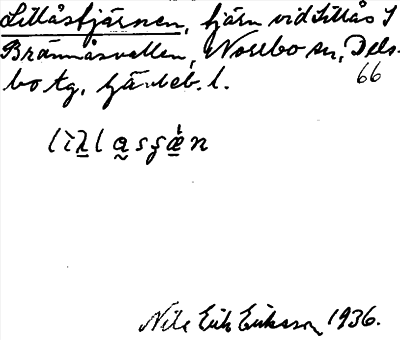 Lillåstjärnen, tjärn vid Lillås S
Brännåsvallen, Norrbo sn, Dels-
bo tg, Gävleb. l. 66
Nils Erik Eriksson, 1936.